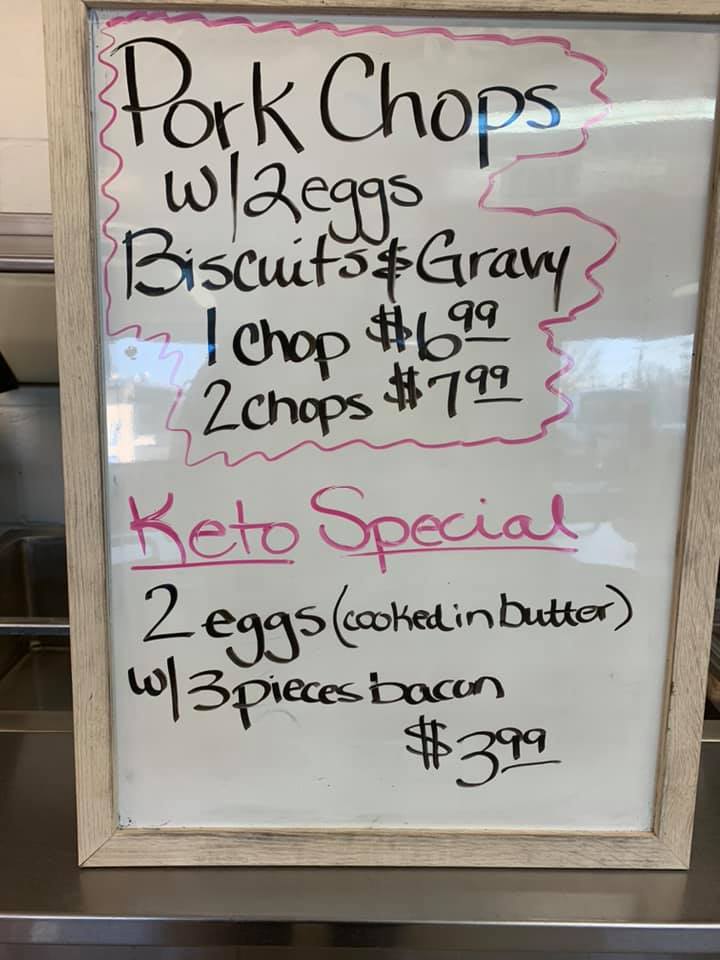 Pork Chops
w/2eggs
Biscuits & Gravy
1 chop $6.99
2 chops $7.99
Keto Special
2 eggs (cooked in butter)
w/3 pieces bacon
$3.99